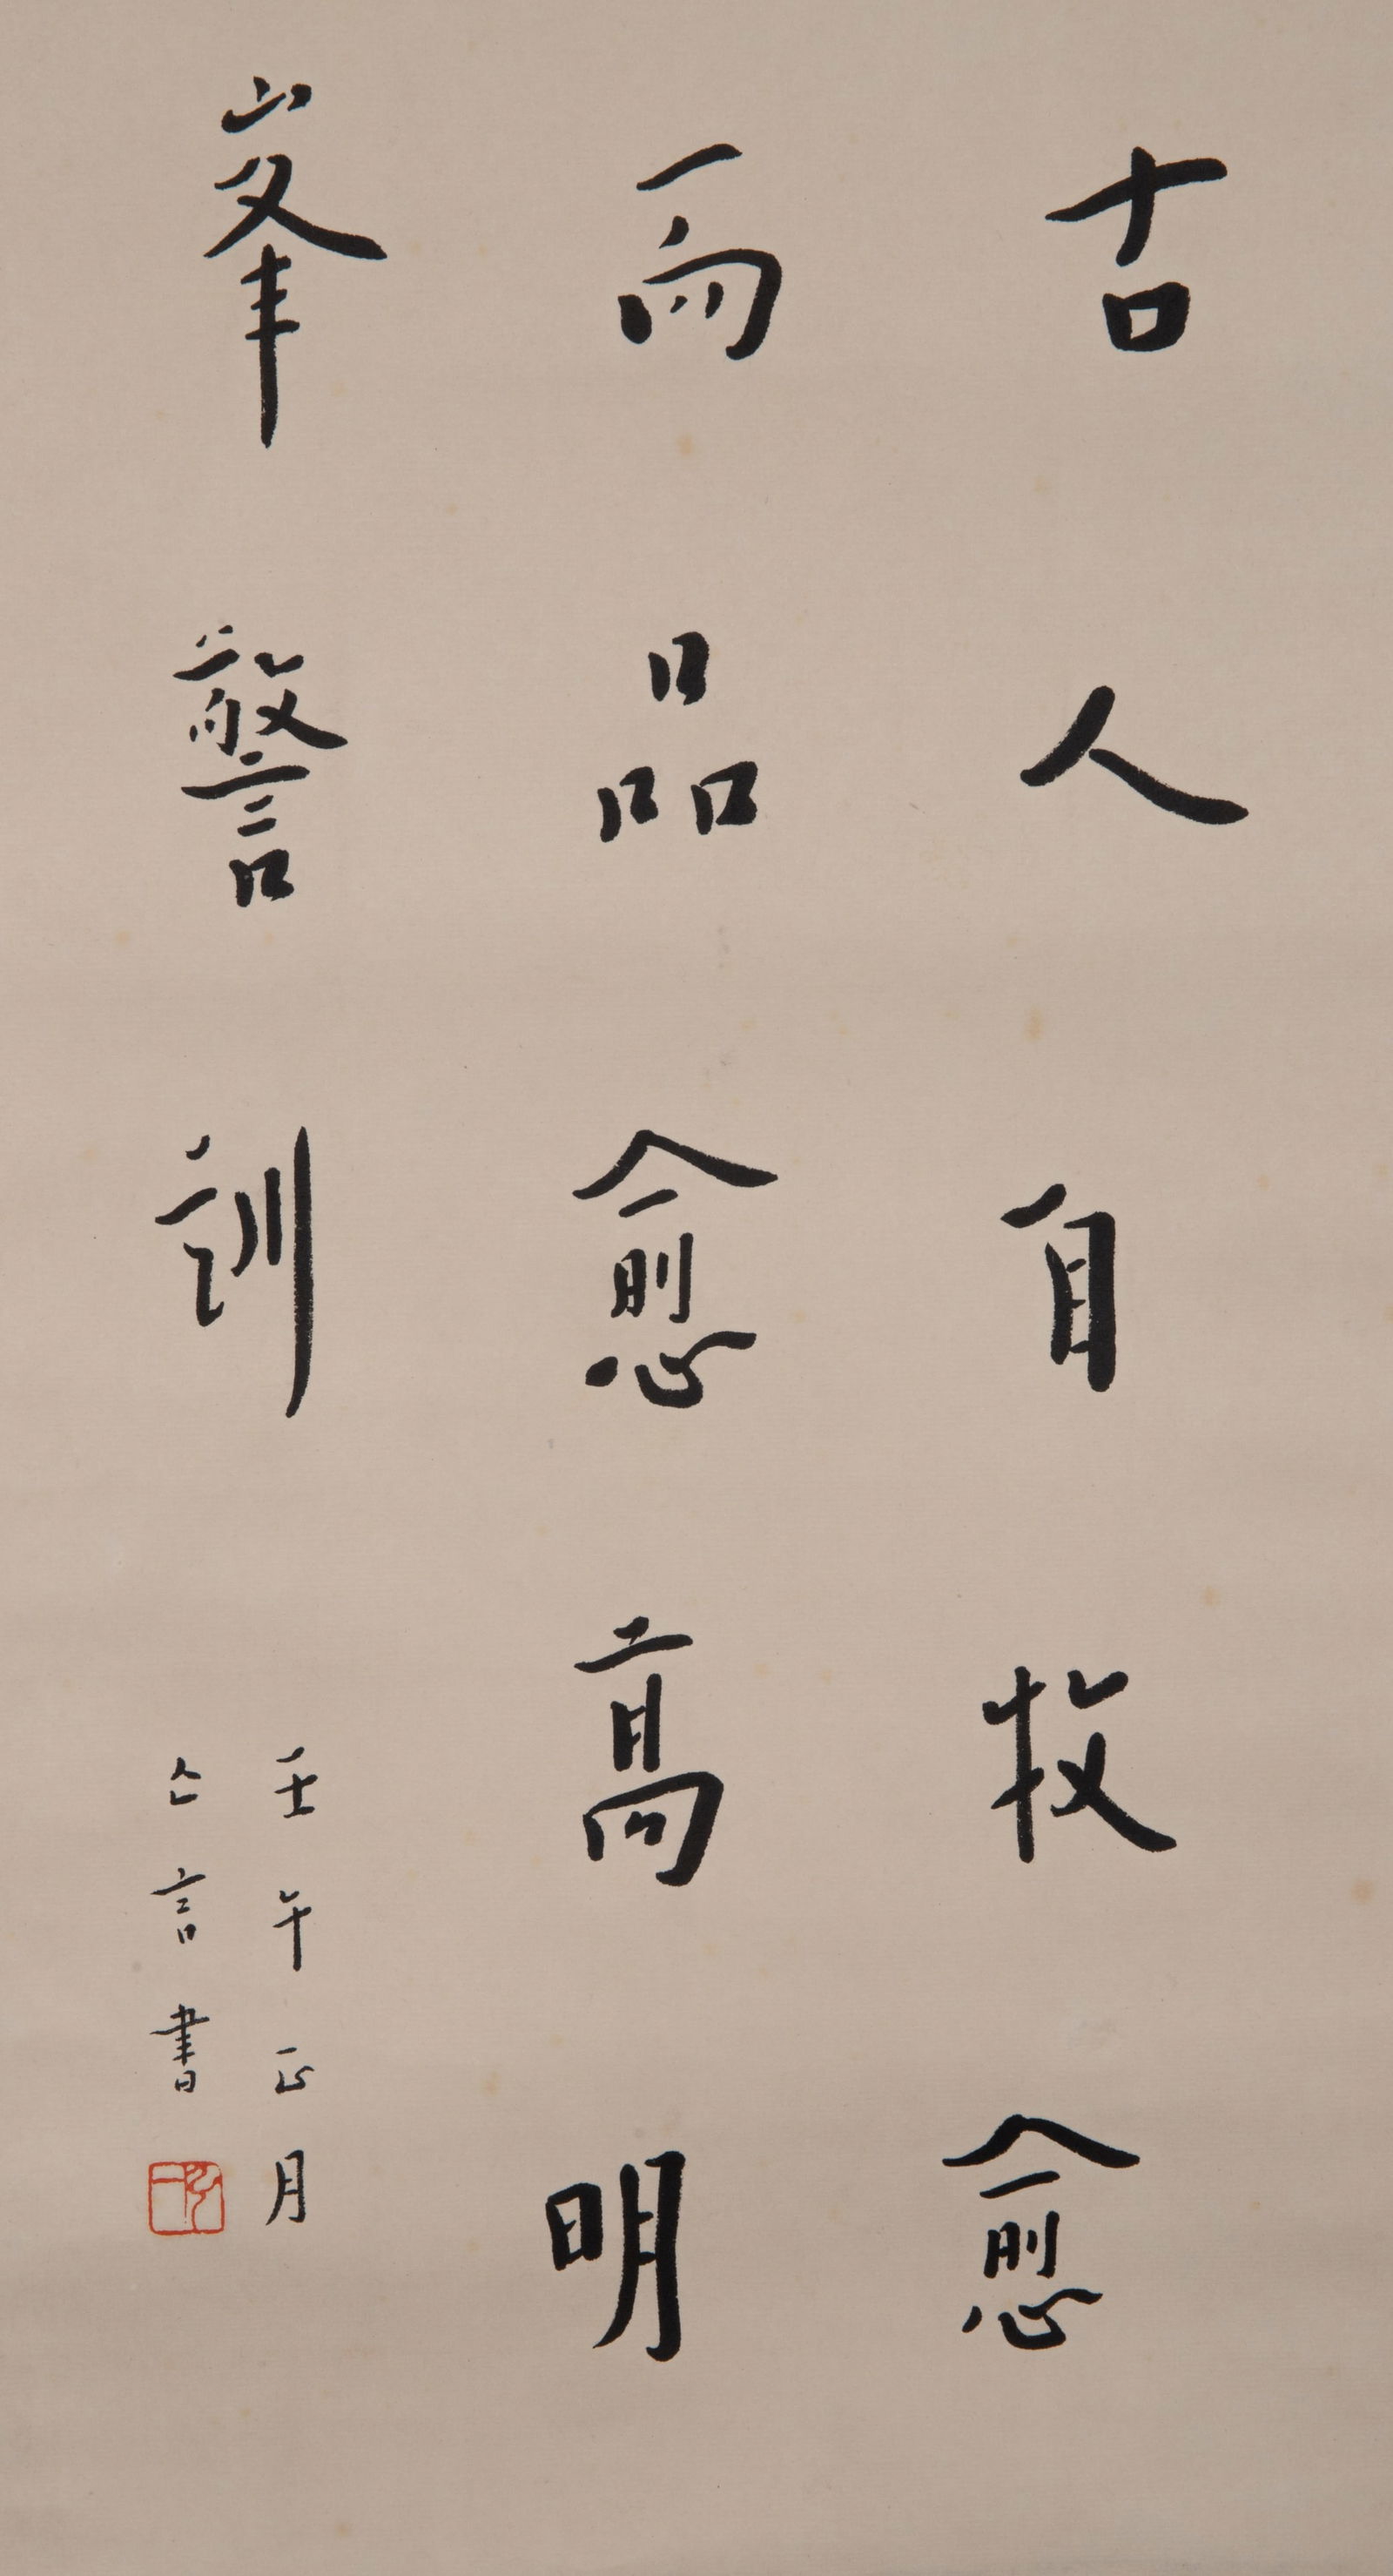 古人自牧愈
而品愈高明
峯警訓
壬午正月
亼言書